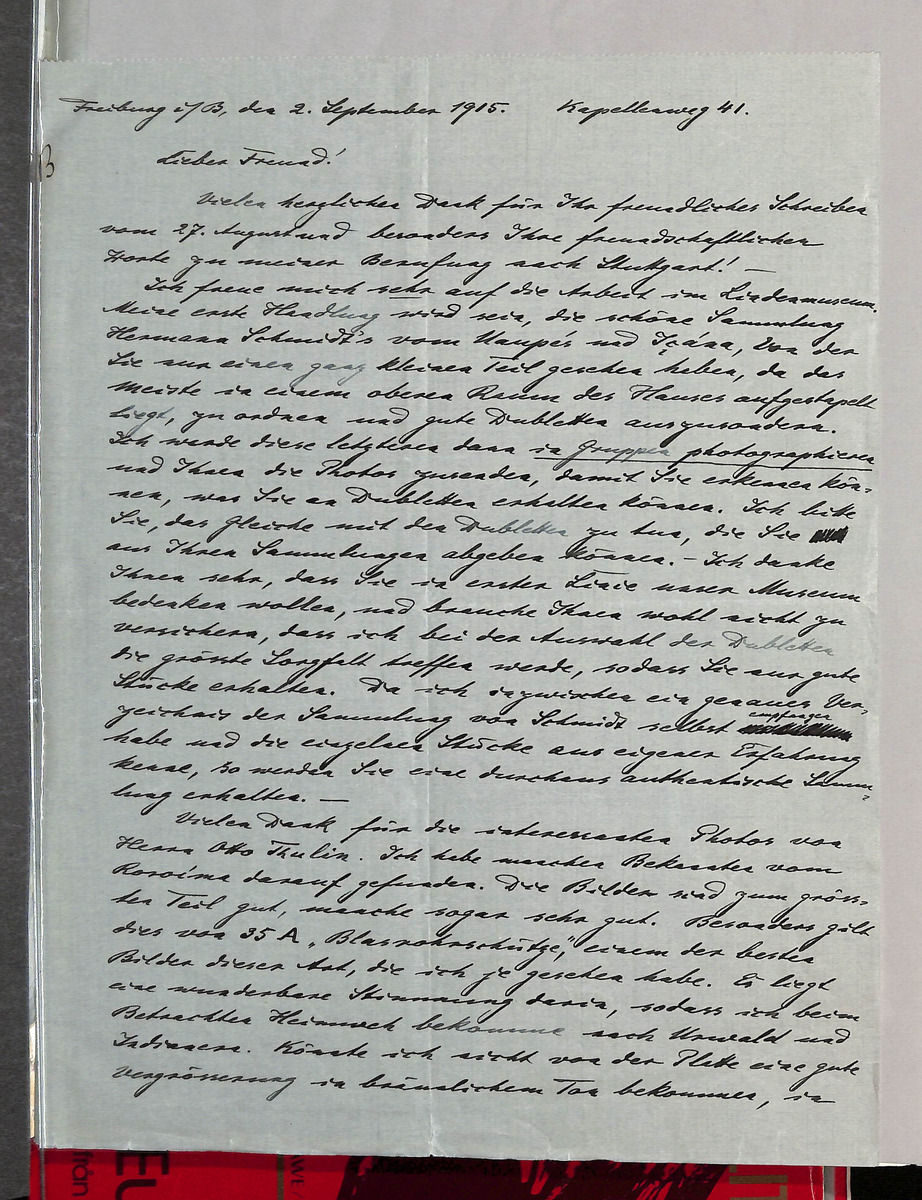 Freiburg i/B, den 2. September 1915. Kapellenweg 41.
Lieber Freund!
Vielen herzlichen Dank für Ihr freundliches Schreiben
vom 27. August und besonders Ihre freundschaftlichen
Worte zu meiner Berufung nach Stuttgart! —
Ich freue mich sehr auf die Arbeit im Lindenmuseum.
Meine erste Handlung wird sein, die schöne Sammlung
Hermann Schmidt's vom Uaupés und Içána, von der
Sie nur einen ganz kleinen Teil gesehen haben, da das
meiste in einem oberen Raum des Hauses aufgestapelt
liegt, zu ordnen und gute Dubletten auszusondern.
Ich werde diese letzteren dann in Gruppen photographieren
und Ihnen die Photos zusenden, damit Sie erkennen kön-
nen, was Sie an Dubletten erhalten können. Ich bitte
Sie, das Gleiche mit den Dubletten zu tun, die Sie
aus Ihren Sammlungen abgeben können. – Ich danke
Ihnen sehr, dass Sie in erster Linie unser Museum
bedenken wollen, und brauche Ihnen wohl nicht zu
versichern, dass ich bei der Auswahl der Dubletten
die grösste Sorgfalt treffen werde, sodass Sie nur gute
Stücke erhalten. Da ich inzwischen ein genaues Ver-
zeichnis der Sammlung von Schmidt selbst empfangen
habe und die einzelnen Stücke aus eigener Erfahrung
kenne, so werden Sie eine durchaus authentische Samm-
lung erhalten. —
Vielen Dank für die interessanten Photos von
Herrn Otto Thulin. Ich habe manchen Bekannten vom
Roroíma darauf gefunden. Die Bilder sind zum gröss-
ten Teil gut, manche sogar sehr gut. Besonders gilt
dies von 35 A „Blasrohrschütze", einem der besten
Bilder dieser Art, die ich je gesehen habe. Es liegt
eine wunderbare Stimmung darin, sodass ich beim
Betrachten Heimweh bekomme nach Urwald und
Indianern. Könnte ich nicht von der Platte eine gute
Vergrösserung in bräunlichem Ton bekommen, in
från
EU